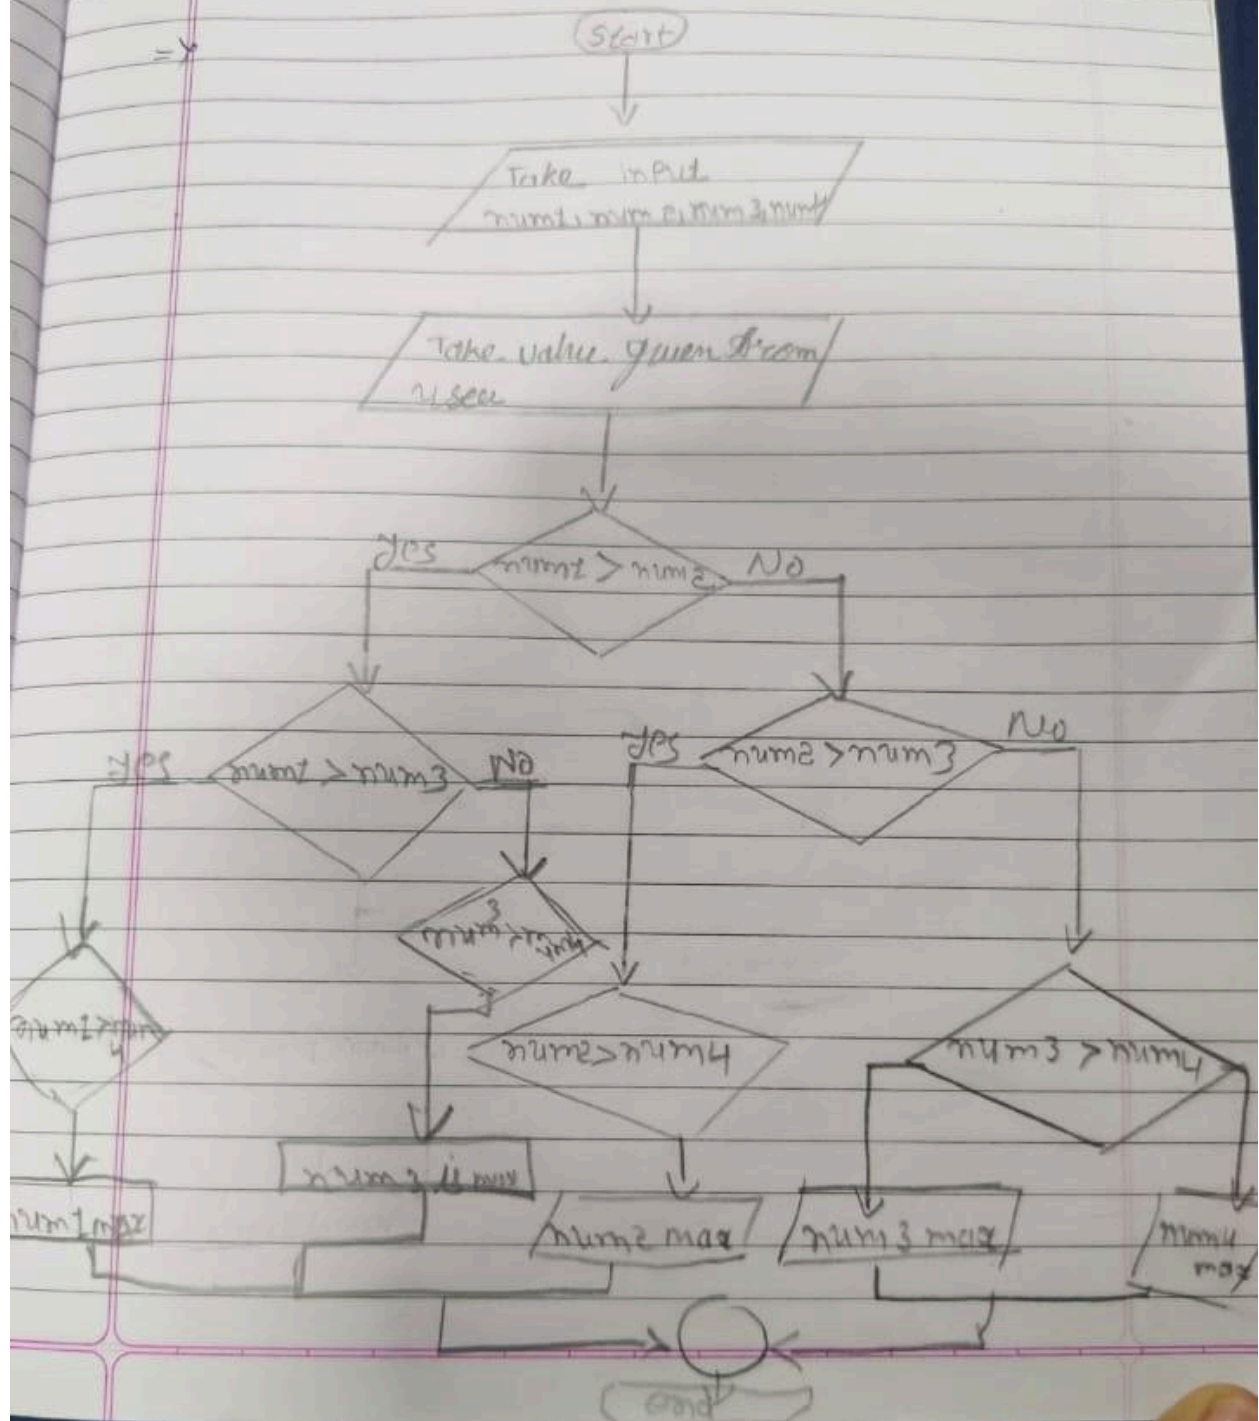 =>
Start
Take input
num1, num2, num3, num4
Take value given from
user
Yes
num1 > num2
No
Yes
num1 > num3
No
Yes
num2 > num3
No
num3 > num4
num1 > num4
num2 > num4
num3 > num4
num3 is max
num1 max
num2 max
num3 max
num4
max
end